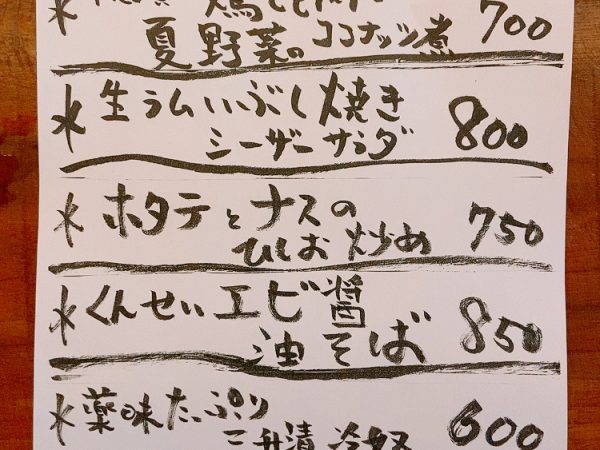 鶏と
夏野菜のココナッツ煮 700
水 生ラムいぶし焼き
シーザーサラダ 800
水 ホタテとナスの
ひしお炒め 750
水 くんせいエビ醤
油そば 850
水 薬味たっぷり
三升漬冷奴 600